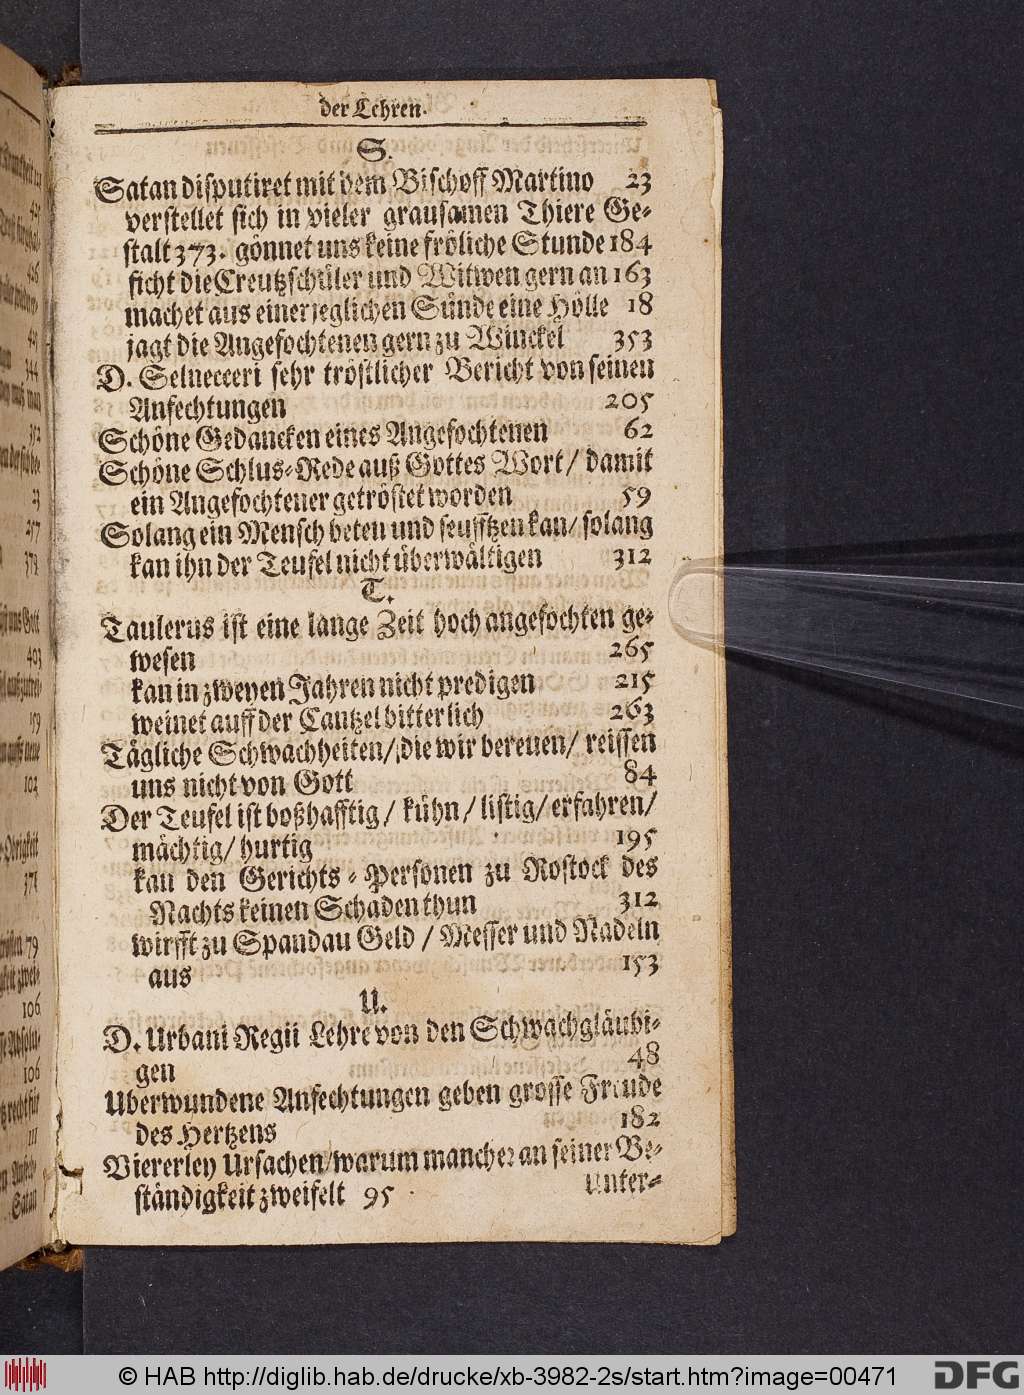 der Lehren.
S.
Satan disputiret mit dem Bischoff Martino 23
verstellet sich in vieler grausamen Thiere Ge-
stalt 373. gönnet uns keine fröliche Stunde 184
ficht die Creutzschüler und Witwen gern an 163
machet aus einer jeglichen Sünde eine Hölle 18
jagt die Angefochtenen gern zu Winckel 353
D. Selnecceri sehr tröstlicher Bericht von seinen
Anfechtungen 205
Schöne Gedancken eines Angefochtenen 62
Schöne Schlus-Rede auß Gottes Wort / damit
ein Angefochtener getröstet worden 59
Solang ein Mensch beten und seufftzen kan / solang
kan ihn der Teufel nicht überwältigen 312
T.
Taulerus ist eine lange Zeit hoch angefochten ge-
wesen 265
kan in zweyen Jahren nicht predigen 215
weinet auff der Cantzel bitterlich 263
Tägliche Schwachheiten / die wir bereuen / reissen
uns nicht von Gott 84
Der Teufel ist boßhafftig / kühn / listig / erfahren /
mächtig / hurtig 195
kan den Gerichts-Personen zu Rostock des
Nachts keinen Schaden thun 312
wirfft zu Spandau Geld / Messer und Nadeln
aus 153
U.
D. Urbani Regii Lehre von den Schwachgläubi-
gen 48
Uberwundene Anfechtungen geben grosse Freude
des Hertzens 182
Viererley Ursachen / warum mancher an seiner Be-
ständigkeit zweifelt 95 Unter-
© HAB http://diglib.hab.de/drucke/xb-3982-2s/start.htm?image=00471
DFG